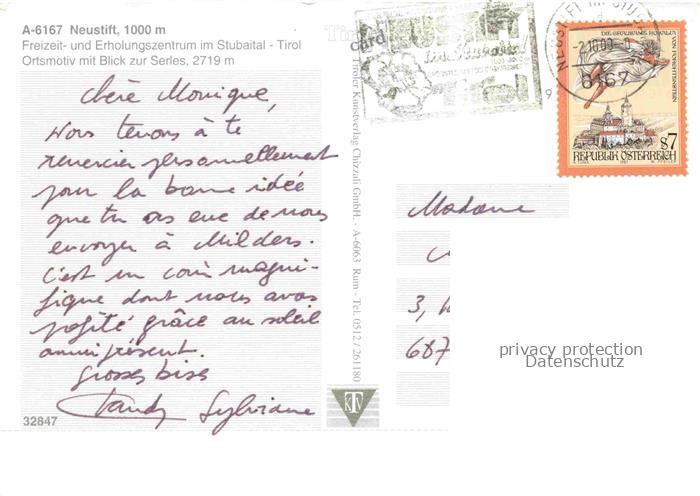 A-6167 Neustift, 1000 m
Freizeit- und Erholungszentrum im Stubaital - Tirol
Ortsmotiv mit Blick zur Serles, 2719 m
Chère Monique,
Nous tenons à te
remercier personnellement
pour la bonne idée
que tu as eue de nous
envoyer à Milders.
C'est un coin magni-
fique dont nous avons
profité grâce au soleil
omniprésent.
Grosses bises
Sylviane
32847
Tiroler Kunstverlag Chizzali GmbH. - A-6063 Rum - Tel. 0512 / 261180
card
KTV
6167
S7
REPUBLIK ÖSTERREICH
Madame
3,
687
privacy protection
Datenschutz